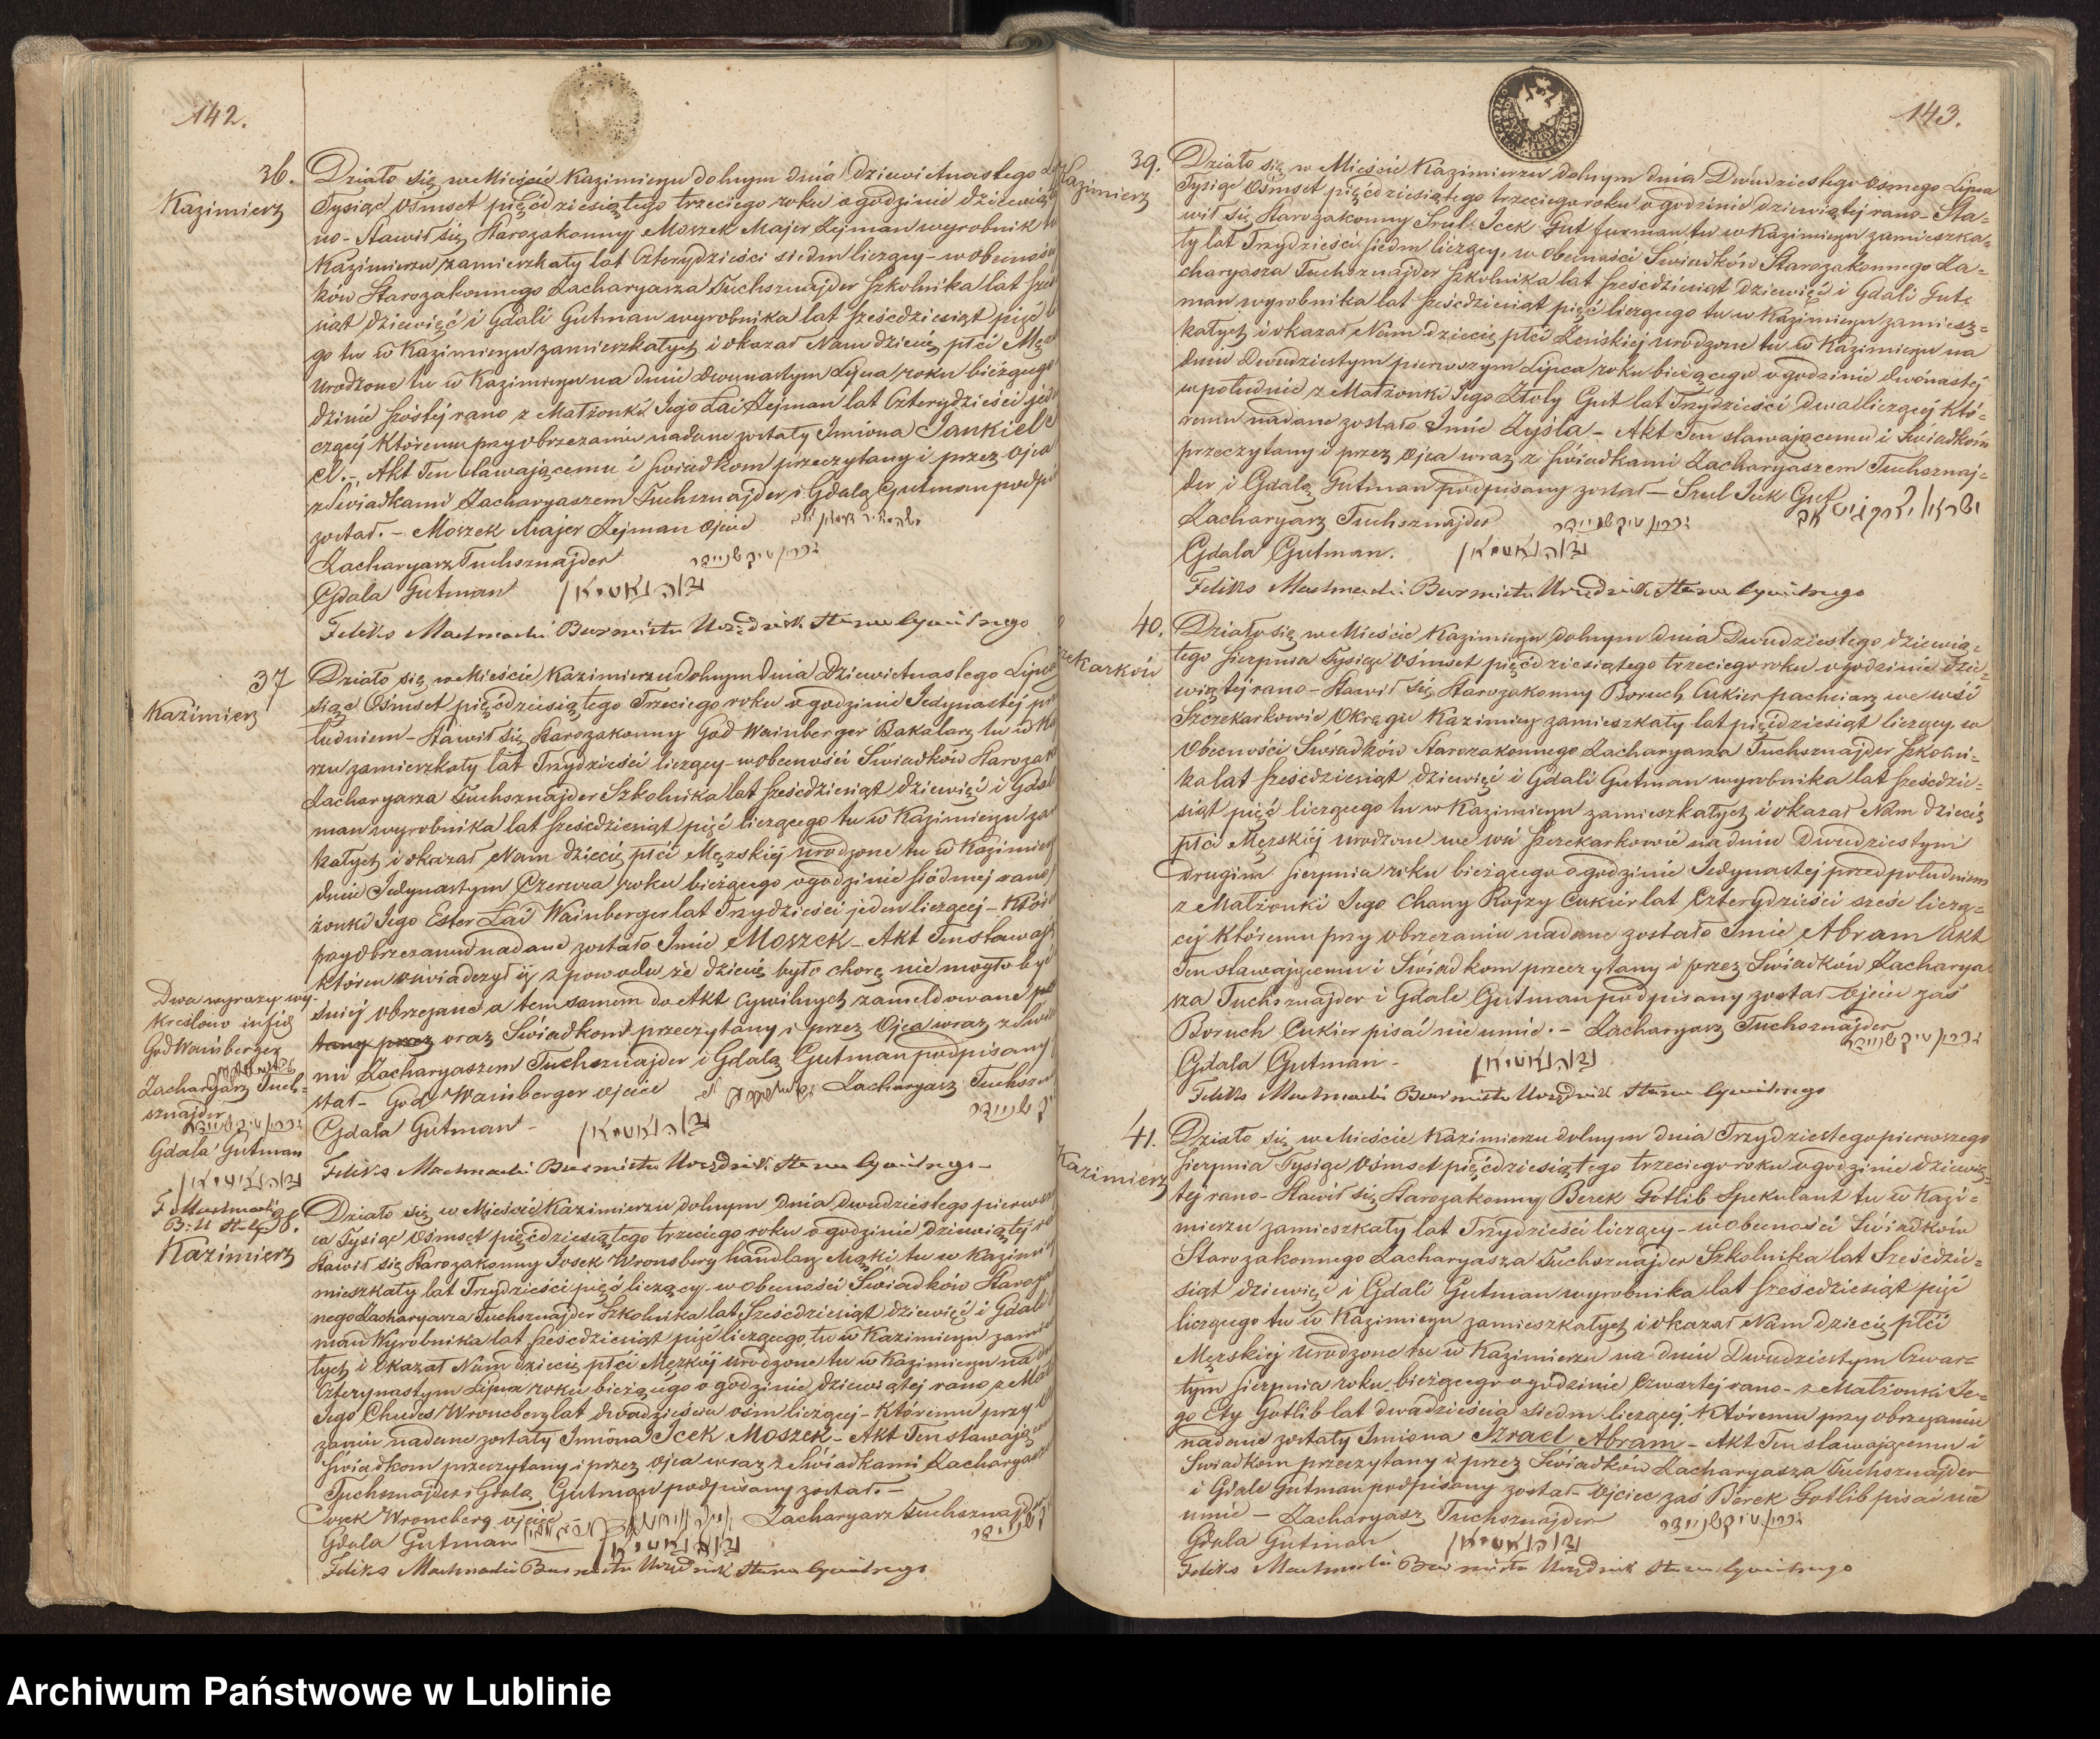 142.
36.
Kazimierz
Działo się w Mieście Kazimierzu dolnym dnia dziewiętnastego
Tysiąc Ośmset pięćdziesiątego trzeciego roku o godzinie dziewiątej
no – Stawił się Starozakonny Moszek Majer Zejman wyrobnik
Kazimierzu zamieszkały lat Czterydzieści siedm liczący – w obecności
ków Starozakonnego Zacharyasza Tuchsznajder Szkolnika lat
siąt dziewięć i Gdali Gutman wyrobnika lat sześćdziesiąt pięć
go tu w Kazimierzu zamieszkałych i okazał Nam dziecię płci
urodzone tu w Kazimierzu na dniu dwunastym Lipca roku bieżącego
dzinie szóstej rano z Małżonki Jego Łai Zejman lat Czterydzieści
czącej któremu przy obrzezaniu nadane zostały Imiona Jankiel
Akt Ten stawającemu i świadkom przeczytany i przez Ojca
z Świadkami Zacharyaszem Tuchsznajder i Gdalą Gutman
został. – Moszek Majer Zejman Ojciec
Zacharyasz Tuchsznajder זכרי' טיקשניידר
Gdala Gutman גדלה גאטמאן
Feliks Machnacki Burmistrz Urzędnik Stanu Cywilnego
37
Kazimierz
Działo się w Mieście Kazimierzu dolnym dnia dziewiętnastego Lipca
siąc Ośmset pięćdziesiątego Trzeciego roku o godzinie Jedynastej
łudniem – Stawił się Starozakonny God Wainberger Bakałarz tu w
rzu zamieszkały lat Trzydzieści liczący – w obecności Świadków
Zacharyasza Tuchsznajder Szkolnika lat sześćdziesiąt dziewięć i
man wyrobnika lat sześćdziesiąt pięć liczącego tu w Kazimierzu
kałych i okazał Nam dziecię płci Męzkiej urodzone tu w
dniu Jedynastym Czerwca roku bieżącego o godzinie siódmej rano
żonki Jego Ester Łai Wainberger lat Trzydzieści jeden liczącej –
przy obrzezaniu nadane zostało Imie Moszek – Akt Ten
któren oświadczył iż z powodu że dziecię było chore nie mogło być
śniej obrzezane a tem samem do Akt Cywilnych zameldowane
tany przez oraz Świadkom przeczytany i przez Ojca wraz z
mi Zacharyaszem Tuchsznajder i Gdalą Gutman podpisany
stał – God Wainberger Ojciec Zacharyasz
Gdala Gutman – גדלה גאטמאן
Feliks Machnacki Burmistrz Urzędnik Stanu Cywilnego –
Dwa wyrazy wy-
kreślono
God Wainberger
Zacharyasz Tuch-
sznajder
זכרי' טיקשניידר
Gdala Gutman
גדלה גאטמאן
F. Machnacki
38.
Kazimierz
Działo się w Mieście Kazimierzu dolnym dnia dwudziestego
ca Tysiąc Ośmset pięćdziesiątego trzeciego roku o godzinie dziewiątej
Stawił się Starozakonny Josek Wronsberg handlarz Mąki tu w
mieszkały lat Trzydzieści pięć liczący – w obecności Świadków
nego Zacharyasza Tuchsznajder Szkolnika lat Sześćdziesiąt dziewięć i Gdali
man Wyrobnika lat sześćdziesiąt pięć liczącego tu w Kazimierzu
łych i okazał Nam dziecię płci Męzkiej urodzone tu w Kazimierzu na
Czternastym Lipca roku bieżącego o godzinie dziewiątej rano z
Jego Chudes Wroneberg lat dwadzieścia ośm liczącej – któremu przy
zaniu nadane zostały Imiona Icek Moszek – Akt Ten
Świadkom przeczytany i przez Ojca wraz z Świadkami
Tuchsznajder i Gdalą Gutman podpisany został. –
Josek Wroneberg Ojciec Zacharyasz Tuchsznajder
Gdala Gutman גדלה גאטמאן
Feliks Machnacki Burmistrz Urzędnik Stanu Cywilnego
143.
39.
Kazimierz
Działo się w Mieście Kazimierzu dolnym dnia Dwudziestego Ósmego Lipca
Tysiąc Ośmset pięćdziesiątego trzeciego roku o godzinie dziewiątej rano – Sta=
wił się Starozakonny Srul Icek Gut furman tu w Kazimierzu zamieszka=
ły lat Trzydzieści siedm liczący, w obecności Świadków Starozakonnego Za=
charyasza Tuchsznajder Szkolnika lat sześćdziesiąt dziewięć i Gdali Gut=
man wyrobnika lat sześćdziesiąt pięć liczącego tu w Kazimierzu zamiesz=
kałych i okazał Nam dziecię płci Żeńskiej urodzone tu w Kazimierzu na
dniu Dwudziestym pierwszym Lipca roku bieżącego o godzinie dwónastej
w południe z Małżonki Jego Złoty Gut lat Trzydzieści dwa liczącej któ=
remu nadane zostało Imie Zysla – Akt Ten stawającemu i Świadkom
przeczytany i przez Ojca wraz z Świadkami Zacharyaszem Tuchsznaj=
der i Gdalą Gutman podpisany został – Srul Icek Gut
Zacharyasz Tuchsznajder זכרי' טיקשניידר
Gdala Gutman. גדלה גאטמאן
Feliks Machnacki Burmistrz Urzędnik Stanu Cywilnego
40.
Działo się w Mieście Kazimierzu dolnym dnia Dwudziestego dziewią=
tego Sierpnia Tysiąc Ośmset pięćdziesiątego trzeciego roku o godzinie dzie=
wiątej rano – Stawił się Starozakonny Boruch Cukier pachciarz we wsi
Szczekarkowie Okręgu Kazimierz zamieszkały lat pięćdziesiąt liczący, w
Obecności Świadków Starozakonnego Zacharyasza Tuchsznajder Szkolni=
ka lat sześćdziesiąt dziewięć i Gdali Gutman wyrobnika lat sześćdzie=
siąt pięć liczącego tu w Kazimierzu zamieszkałych i okazał Nam dziecię
płci Męzkiej urodzone we wsi Szczekarkowie na dniu Dwudziestym
drugim Sierpnia roku bieżącego o godzinie Jedynastej przed południem
z Małżonki Jego Chany Rojzy Cukier lat Czterydzieści sześć liczą=
cej któremu przy obrzezaniu nadane zostało Imie Abram Akt
Ten stawającemu i Świadkom przeczytany i przez Świadków Zacharya
sza Tuchsznajder i Gdale Gutman podpisany został Ojciec zaś
Boruch Cukier pisać nie umie. – Zacharyasz Tuchsznajder
זכרי' טיקשניידר
Gdala Gutman – גדלה גאטמאן
Feliks Machnacki Burmistrz Urzędnik Stanu Cywilnego
41.
Kazimierz
Działo się w Mieście Kazimierzu dolnym dnia Trzydziestego pierwszego
Sierpnia Tysiąc Ośmset pięćdziesiątego trzeciego roku o godzinie dziewią=
tej rano – Stawił się Starozakonny Berek Gotlib Spekulant tu w Kazi=
mierzu zamieszkały lat Trzydzieści liczący – w obecności Świadków
Starozakonnego Zacharyasza Tuchsznajder Szkolnika lat Sześćdzie=
siąt dziewięć i Gdali Gutman wyrobnika lat sześćdziesiąt pięć
liczącego tu w Kazimierzu zamieszkałych i okazał Nam dziecię płci
Męzkiej urodzone tu w Kazimierzu na dniu Dwudziestym Czwar=
tym Sierpnia roku bieżącego o godzinie Czwartej rano – z Małżonki Je=
go Ety Gotlib lat dwadzieścia siedm liczącej, któremu przy obrzezaniu
nadane zostały Imiona Izrael Abram – Akt Ten stawającemu i
Świadkom przeczytany i przez Świadków Zacharyasza Tuchsznajder
i Gdale Gutman podpisany został – Ojciec zaś Berek Gotlib pisać nie
umie – Zacharyasz Tuchsznajder זכרי' טיקשניידר
Gdala Gutman גדלה גאטמאן
Feliks Machnacki Burmistrz Urzędnik Stanu Cywilnego
Archiwum Państwowe w Lublinie